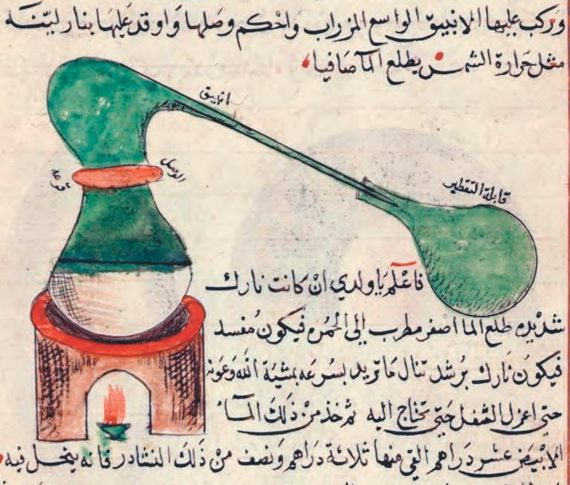 وركب عليها الانبيق الواسع المزراب واحكم وصلها واوقد عليها بنار لينه
مثل حرارة الشمس يطلع الما صافيا
انبيق
الوصل
قابلة التقطير
فاعلم يا ولدي ان كانت نارك
شديده طلع الما اصفر مطرب الى الحمره فيكون مفسد
فيكون نارك برشد تنال ما تريد بسرعه بمشية الله وعونه
حتى اعزل الثفل حتى تحتاج اليه ثم خذ من ذلك الما
الابيض عشر دراهم القي منها ثلاثة دراهم ونصف من ذلك النشادر فانه ينحل فيه